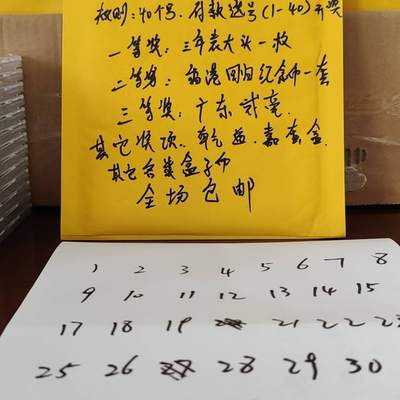 规则:40个号.付款选号(1-40)开奖
一等奖:三年袁大头一枚
二等奖:香港回归纪念币一套
三等奖:广东贰毫
其它奖项、乾益.嘉套盒.
其它各类盒子币
全场包邮
1 2 3 4 5 6 7 8
9 10 11 12 13 14 15
17 18 19 21 22 23
25 26 28 29 30